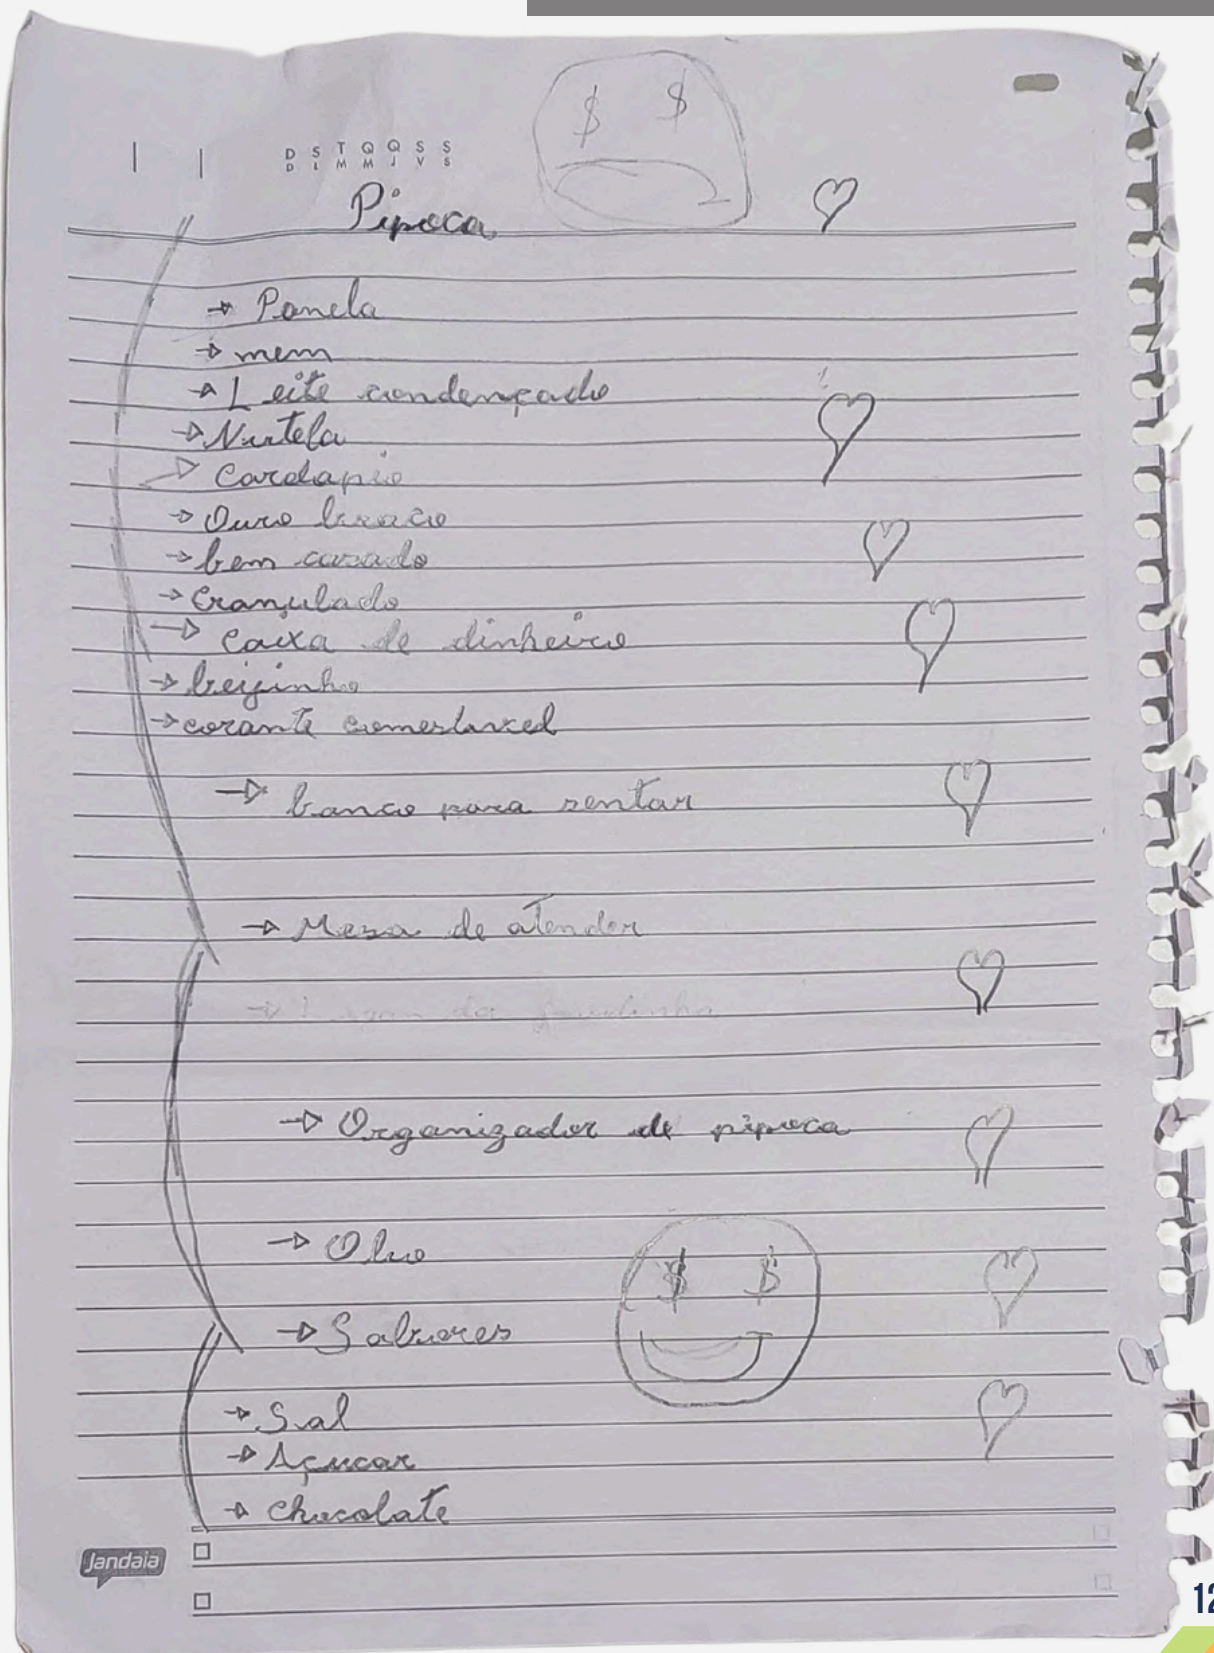 D S T Q Q S S
D L M M J V S
Pipoca
→ Panela
→ mem
→ Leite condençado
→ Nutela
→ Cardapio
→ Ouro braco
→ bem casado
→ Granulado
→ Caixa de dinheiro
→ beijinho
→ corante
→ banco para sentar
→ Mesa de atender
→ da
→ Organizador de pipoca
→ Oluo
$ $
→ Sabores
→ Sal
→ Açucar
→ Chocolate
Jandaia
12